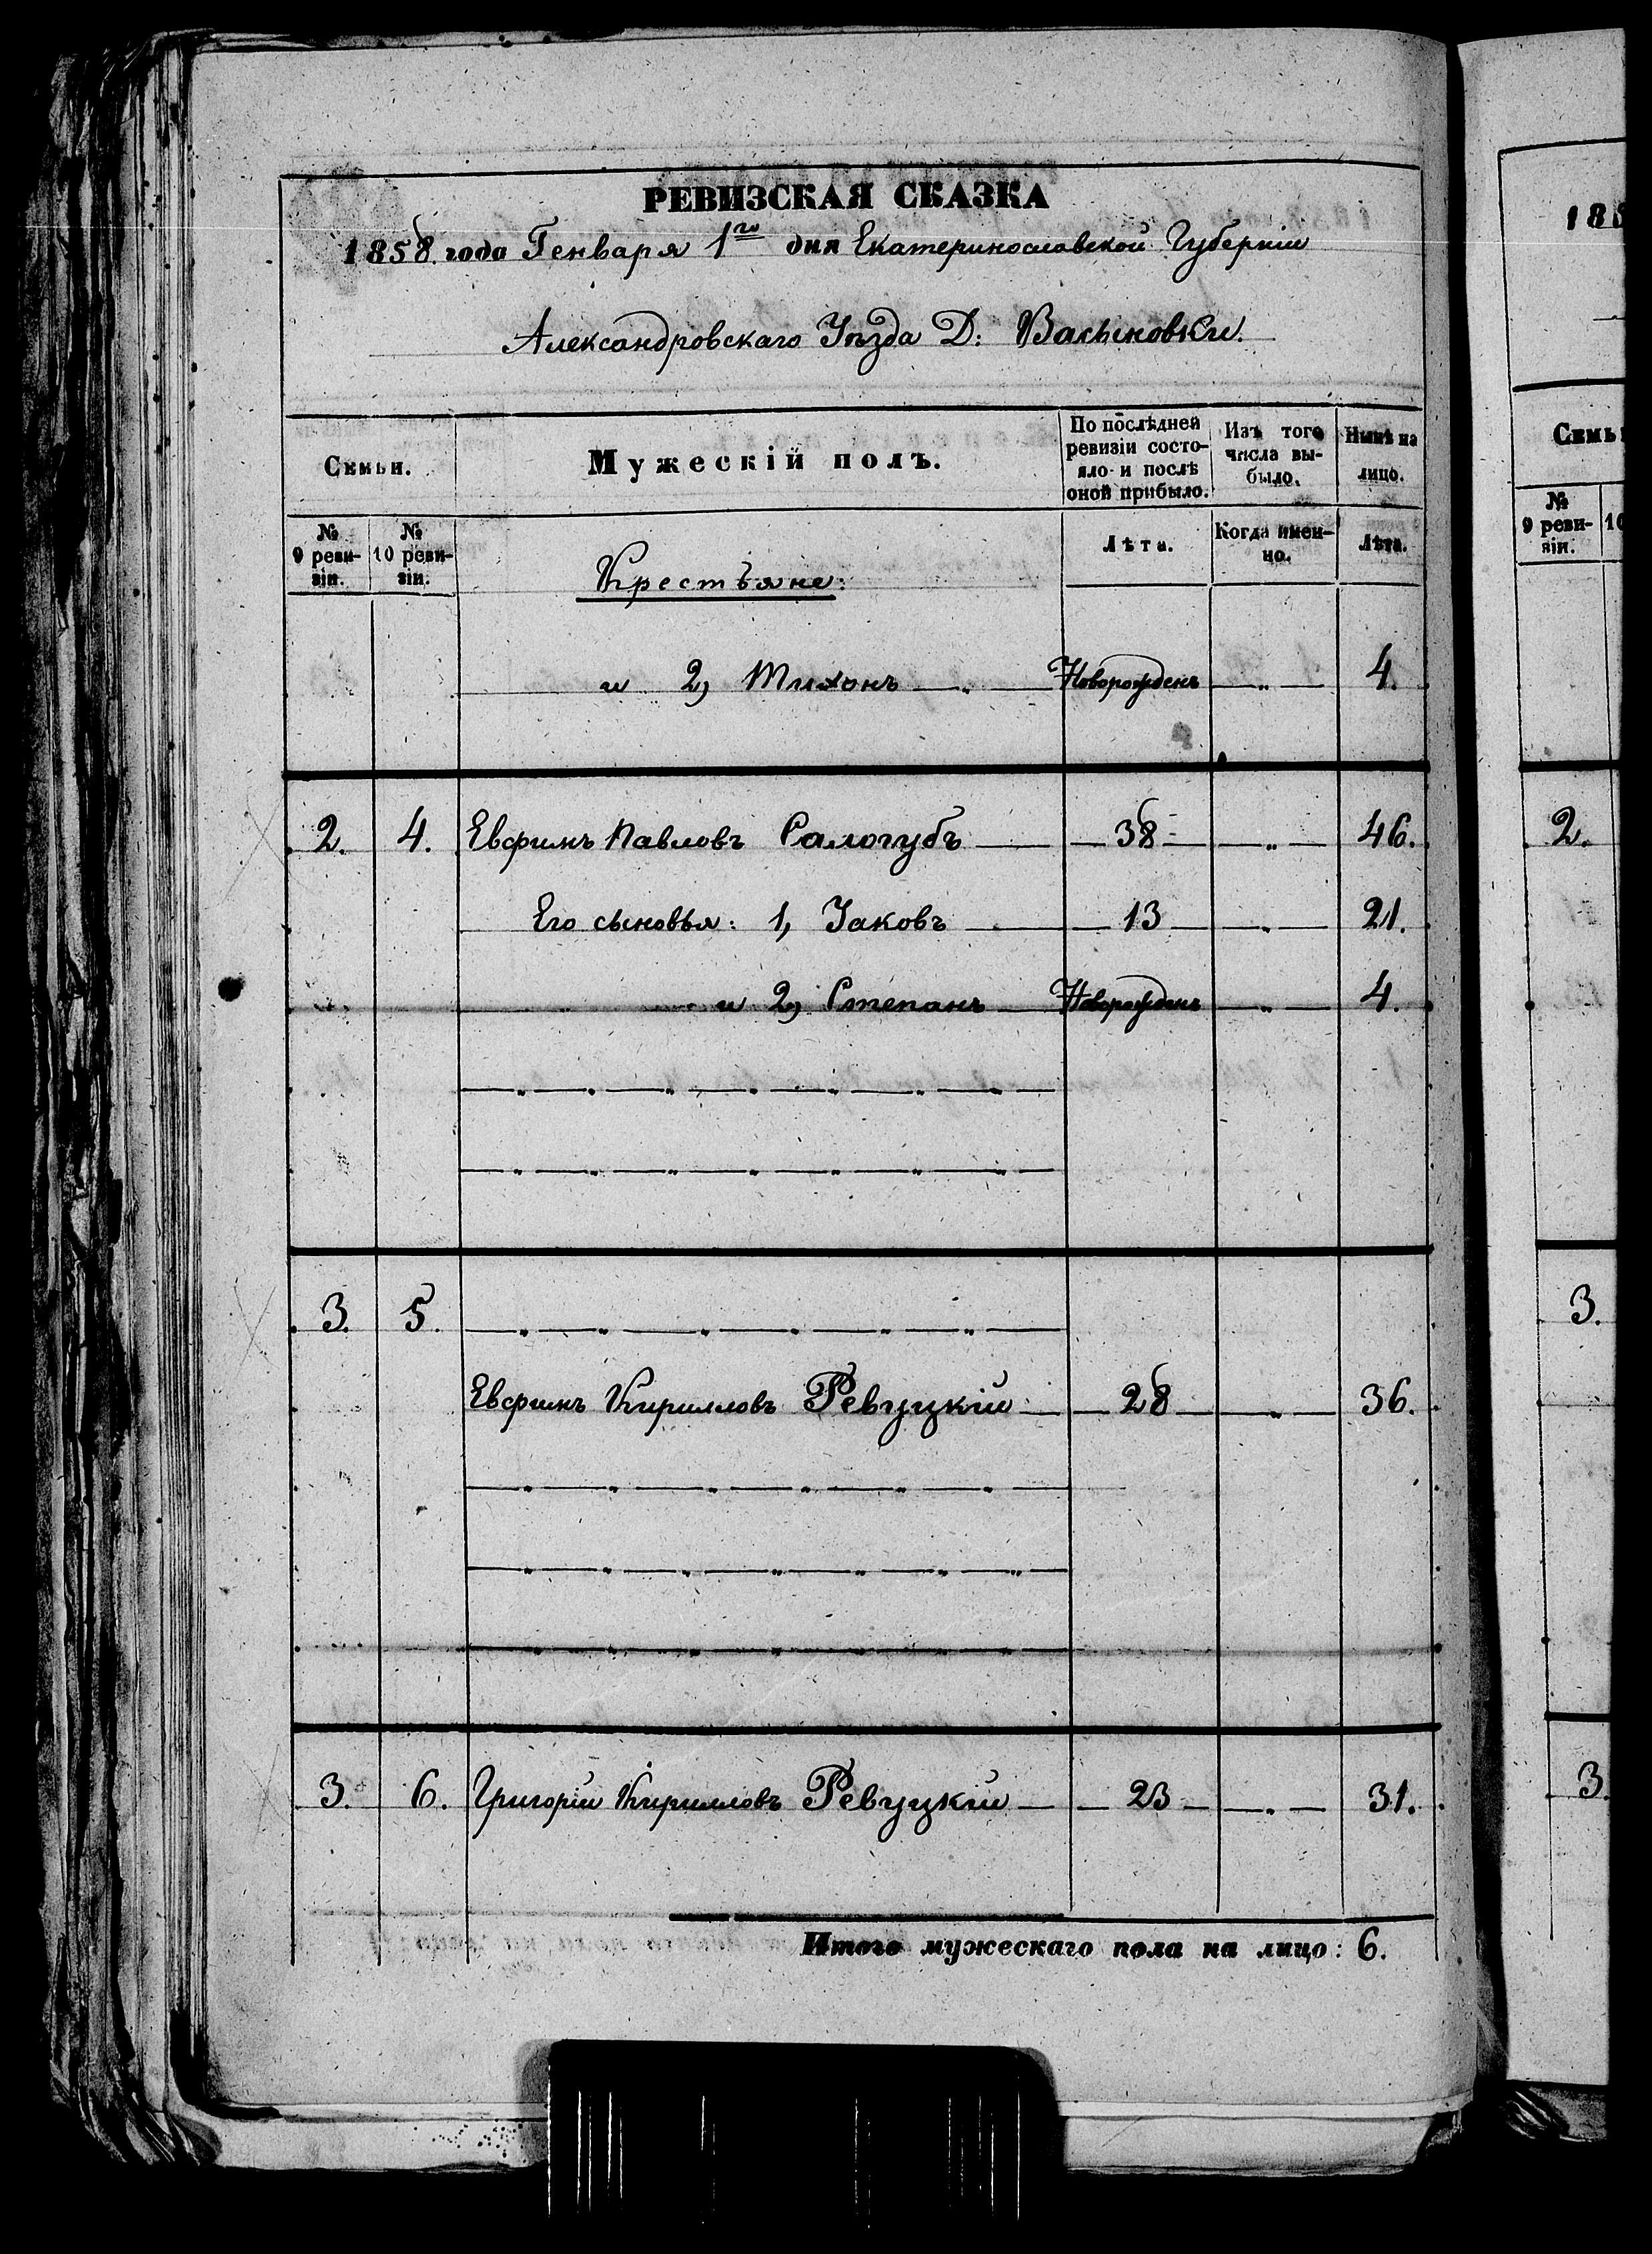 РЕВИЗСКАЯ СКАЗКА
1858 года Генваря 1го дня Екатеринославской Губерніи
Александровскаго Уѣзда Д:
Семьи. Мужескій полъ. По послѣдней ревизіи состояло и послѣ оной прибыло. Изъ того числа выбыло. Нынѣ на лицо.
№ 9 ревизіи. № 10 ревизіи. Лѣта. Когда именно. Лѣта.
Крестьяне:
и 2, Тихонъ — " Новорожденъ — " — 4.
2. 4. Евфимъ Павловъ Салогубъ — 38 — " — 46.
Его сыновья: 1, Іаковъ — 13 — " — 21.
и 2, Степанъ — Новорожденъ — " — 4.
— " — " — " — " — " — " — " —
— " — " — " — " — " — " — " —
3. 5. — " — " — " — " — " — " —
Евфимъ Кирилловъ Ревуцкій — 28 — " — 36.
— " — " — " — " — " — " —
— " — " — " — " — " — " — " —
— " — " — " — " — " — " — " —
3. 6. Григорій Кирилловъ Ревуцкій — 23 — " — 31.
Итого мужескаго пола на лицо: 6.
185
Семьи
№ 9 ревизіи. 10
2.
3.
3.